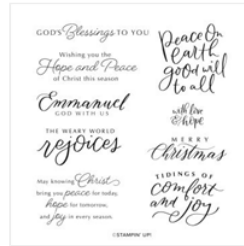 GOD'S Blessings TO YOU
Wishing you the
Hope and Peace
of Christ this season
Emmanuel
GOD WITH US
THE WEARY WORLD
rejoices
May knowing Christ
bring you peace for today,
hope for tomorrow,
and joy in every season.
Peace On
Earth
good will
to all
with love
& hope
MERRY
Christmas
TIDINGS OF
comfort
and joy
©STAMPIN' UP!